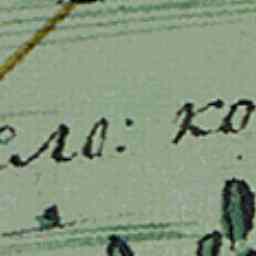 ело: ко